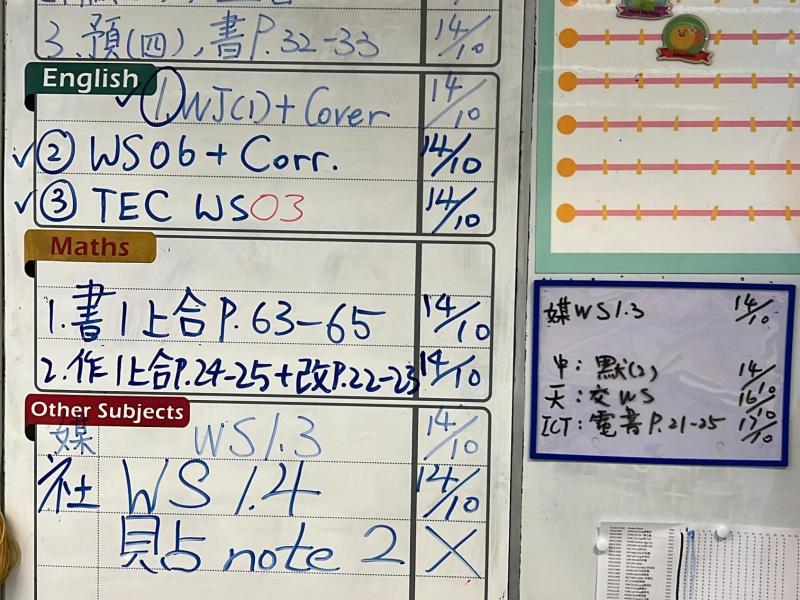 3. 預(四), 書P.32-33 14/10
English
1. WJ(1) + Cover 14/10
② WS06 + Corr. 14/10
③ TEC WS03 14/10
Maths
1. 書1上合P.63-65 14/10
2. 作1上合P.24-25+改P.22-23 14/10
Other Subjects
媒 WS1.3 14/10
社 WS 1.4 14/10
貼 note 2 X
媒WS1.3 14/10
中: 默(2) 14/10
天: 交WS 16/10
ICT: 電書P.21-25 17/10